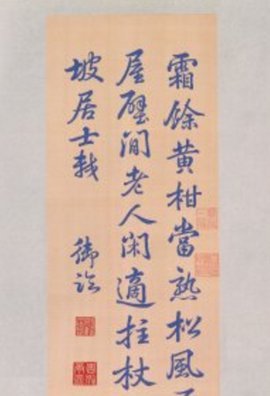 霜餘黃柑當熟松風
屋壁間老人閑適拄杖
坡居士軾 御臨